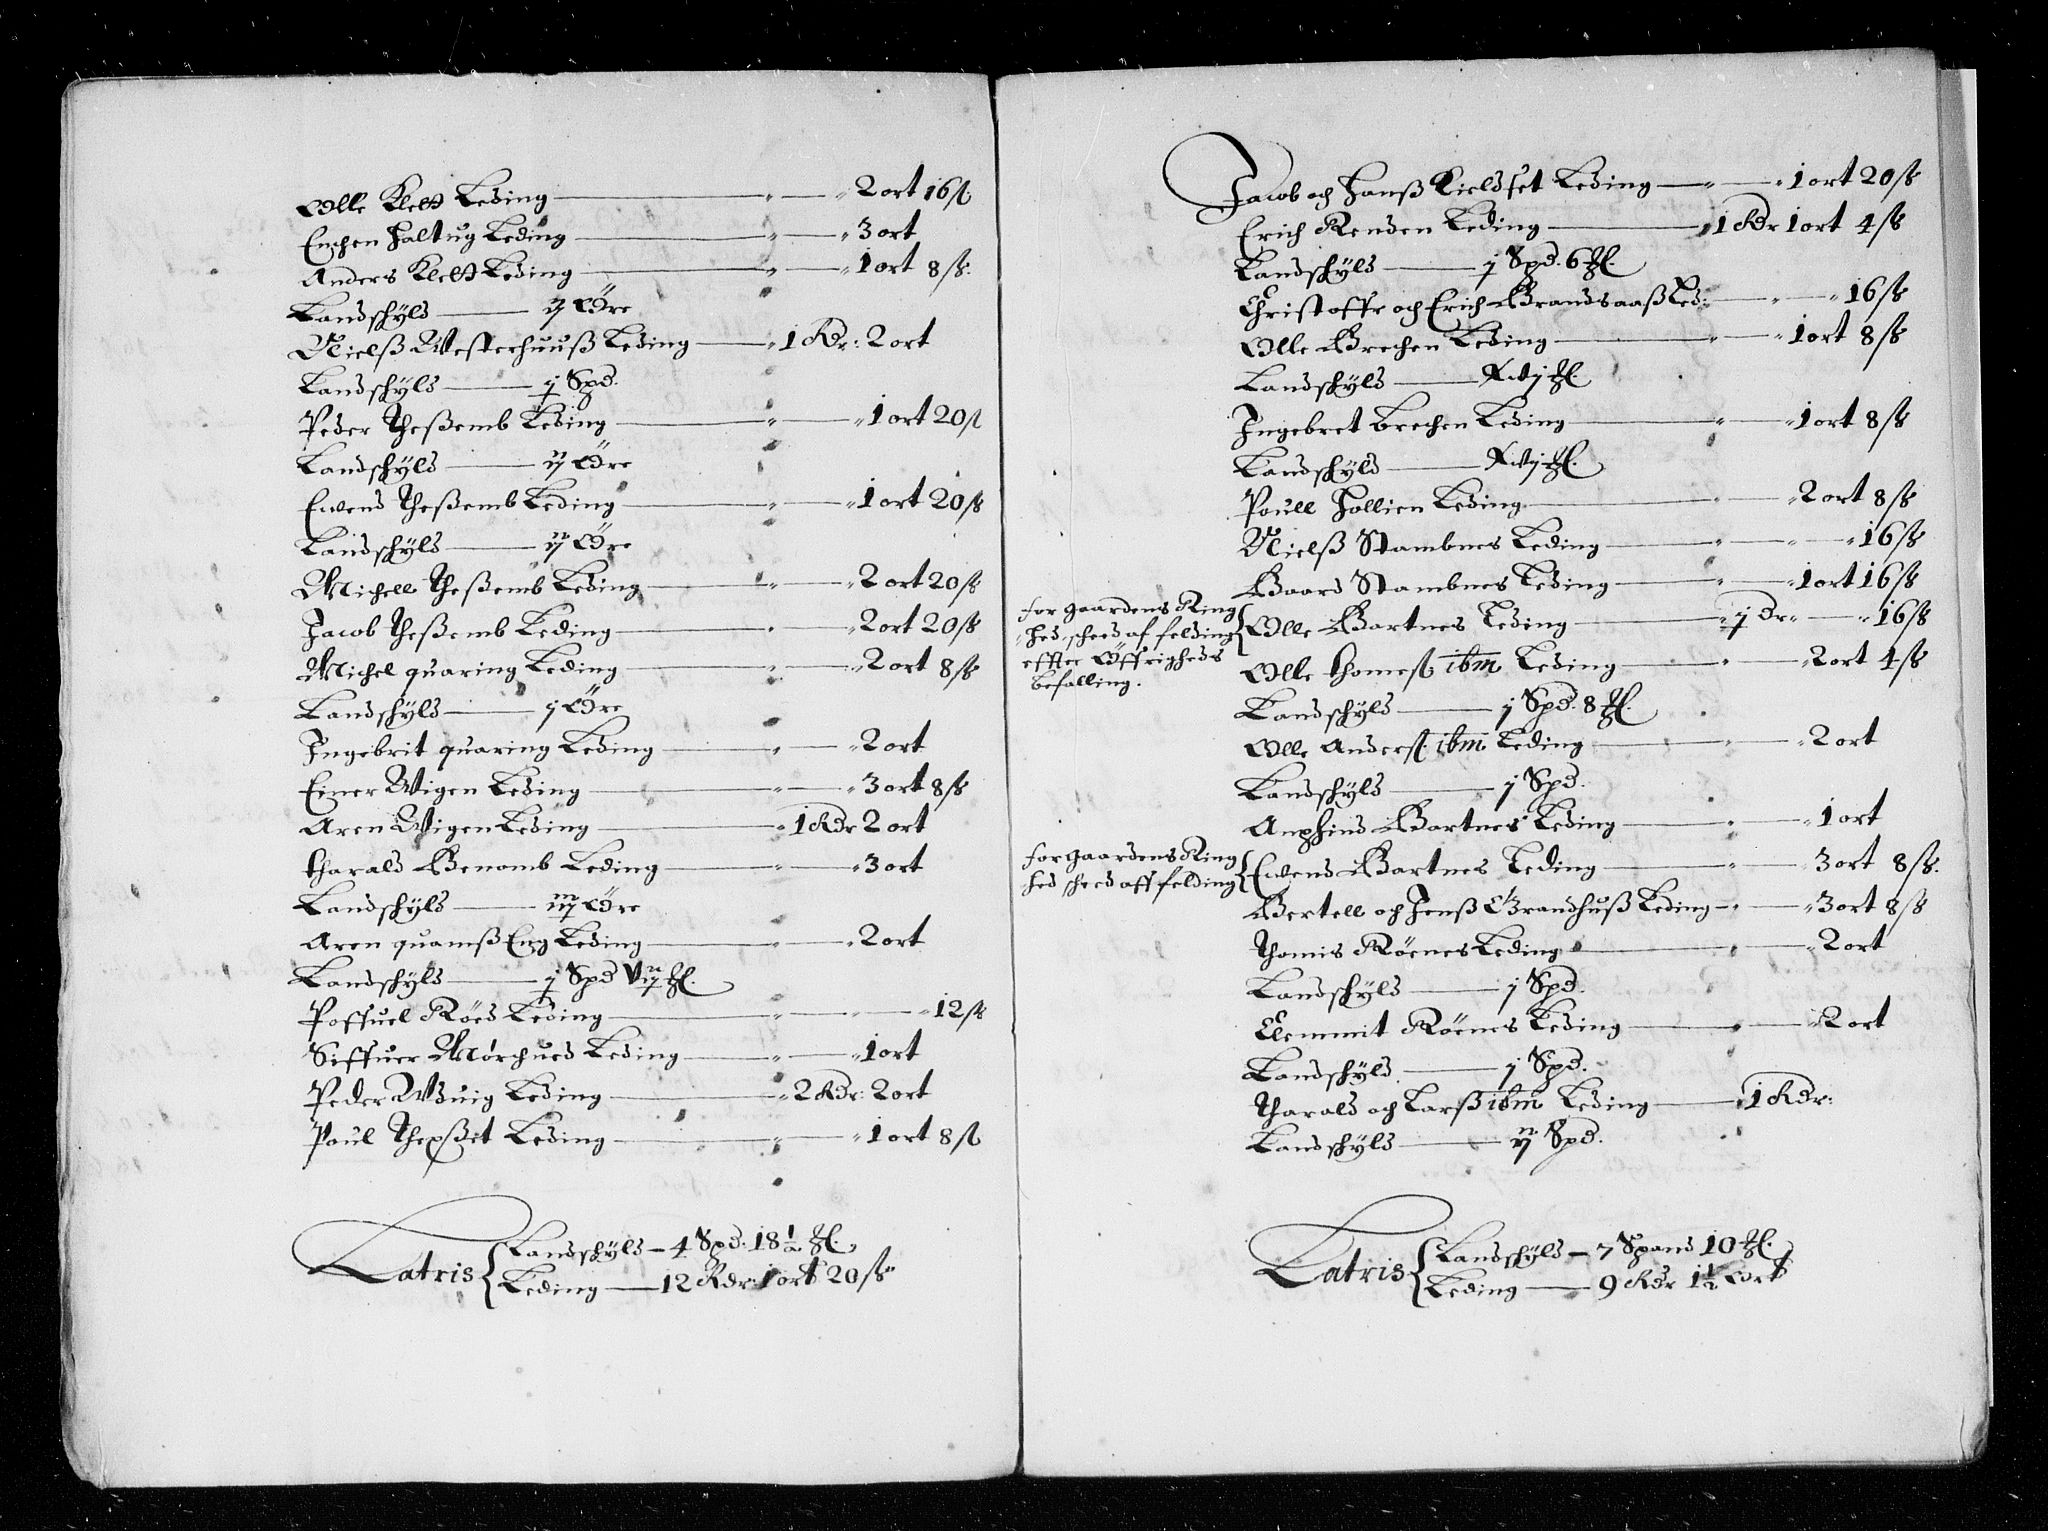 Olle Klett Leding — " — " 2 ort 16 ß
Enchen Haltug Leding — " — " 3 ort
Anders Klett Leding — " — " 1 ort 8 ß.
Landschyld — ij Öre
Nielß Westerhuuß Leding — " 1 Rdr: 2 ort
Landschyld — j Spd.
Peder Theßemb Leding — " — " 1 ort 20 ß
Landschyld — ij Öre
Ewend Theßemb Leding — " — " 1 ort 20 ß
Landschyld — ij Öre
Michell Theßemb Leding — " — " 2 ort 20 ß
Jacob Theßemb Leding — " — " 2 ort 20 ß
Michel quaring Leding — " — " 2 ort 8 ß
Landschyld — j Öre
Ingebrit quaring Leding — " — " 2 ort
Einer Wigen Leding — " — " 3 ort 8 ß
Aren Wigen Leding — " 1 Rdr 2 ort
Harald Benomb Leding — " — " 3 ort
Landschyld — iij Öre
Aren quamß Eng Leding — " — " 2 ort
Landschyld — j Spd Vij
Poffuel Röed Leding — " — " — " 12 ß
Siffuer Mörchued Leding — " — " 1 ort
Peder Wduig Leding — " 2 Rdr: 2 ort
Poul Thepßit Leding — " — " 1 ort 8 ß
Latris { Landschyld – 4 Spd. 18 1/2
Leding — 12 Rdr: 1 ort 20 ß
Jacob och Hanß Kieldset Leding — " — " 1 ort 20 ß
Erich Renden Leding — " 1 Rdr 1 ort 4 ß
Landschyld — j Spd. 6
Christoffr och Erich Brandsaaß Led: — " — " 16 ß
Olle Brechen Leding — " — " 1 ort 8 ß
Landschyld — Xvj
Ingebret Brechen Leding — " — " 1 ort 8 ß
Landschyld — Xvj
Poull Hollien Leding — " — " 2 ort 8 ß
Nielß Stambnes Leding — " — " — " 16 ß
Baard Stambnes Leding — " — " 1 ort 16 ß
for gaardens Ring
hed scheed af felding
effter Öffrigheds
befalling.
{ Olle Bartnes Leding — " j Dr — " 16 ß
Olle thomeß. ibm Leding — " — " 2 ort 4 ß
Landschyld — j Spd. 8
Olle Anderß. ibm Leding — " — " 2 ort
Landschyld — j Spd.
Anphind Bartnes Leding — " — " 1 ort
for gaardens Ring
hed scheed aff felding
{ Ewend Bartnes Leding — " — " 3 ort 8 ß.
Bertell och Jenß Brandhuß Leding – " — " 3 ort 8 ß
Thomis Röenes Leding — " — " 2 ort
Landschyld — j Spd.
Clemmit Röenes Leding — " — " 2 ort
Landschyld — j Spd.
Tharald och Larß ibm Leding — " 1 Rdr:
Landschyld — ij Spd.
Latris { Landschyld – 7 Spand 10
Leding — 9 Rdr 1 1/2 Ort